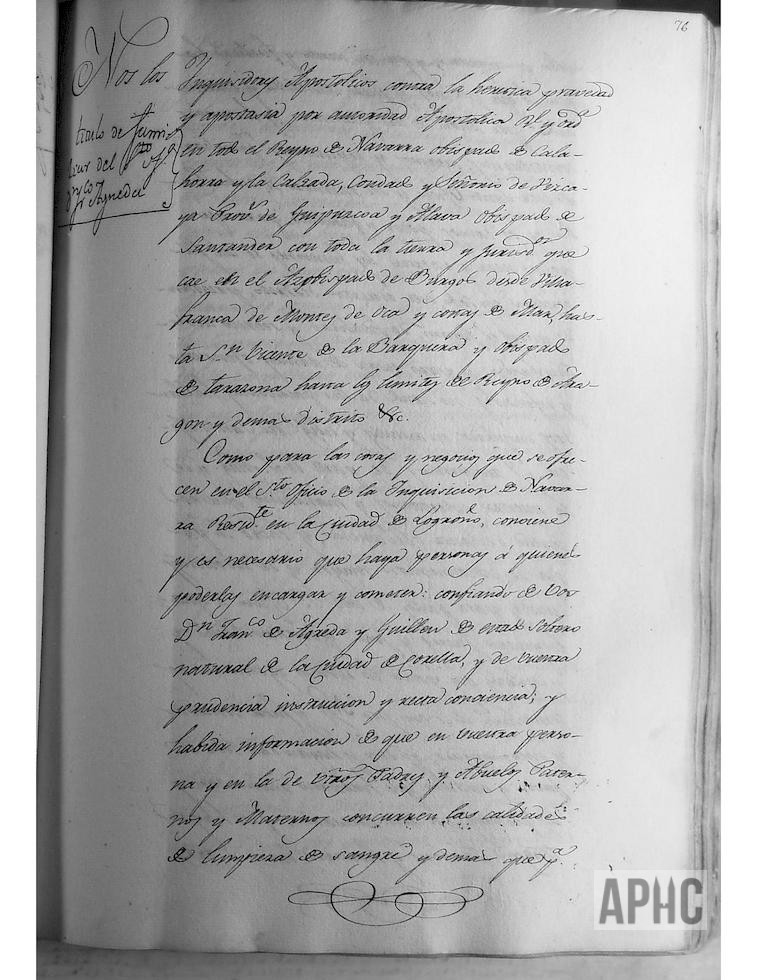 76
Nos los Inquisidores Apostolicos contra la heretica pravedad
y apostasia por autoridad Apostolica Rl y Ordª
en todo el Reyno de Navarra obispado de Cala-
horra y la Calzada, Condado y Señorio de Vizca-
ya Provª de Guipuzcoa y Alava Obispado de
Santander con toda la tierra y jurisdon que
cae en el Arzobispado de Burgos desde Villa-
franca de Montes de Oca y costas de Mar, has-
ta Sn Vicente de la Barquera y Obispado
de tarazona hasta los limites del Reyno de Ara-
gon y demas distrito &c.
Como para las cosas y negocios que se ofre-
cen en el Sto Oficio de la Inquisicion de Navar-
ra Residte en la Ciudad de Logroño, conviene
y es necesario que haya personas á quienes
poderlas encargar y cometer: confiando de vos
Dn Franco de Agreda y Guillen de estado Soltero
natural de la Ciudad de Corella, y de vuestra
prudencia instruccion y recta conciencia; y
habida informacion de que en vuestra perso-
na y en la de vtros Padres y Abuelos Pater-
nos y Maternos concurren las calidades
de limpieza de sangre y demas que pª
titulo de Fami-
liar del Sto
Agreda
APHC